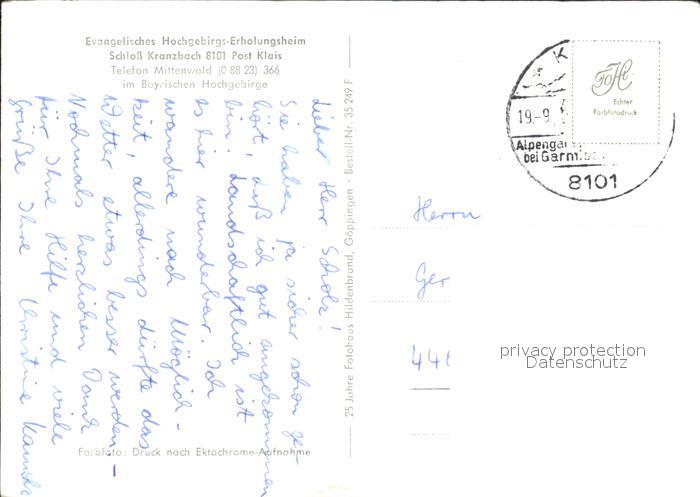 Evangelisches Hochgebirgs-Erholungsheim
Schloß Kranzbach 8101 Post Klais
Telefon Mittenwald (0 88 23) 366
im Bayrischen Hochgebirge
Lieber Herr Scholz!
Sie haben ja sicher schon ge-
hört, daß ich gut angekommen
bin. Landschaftlich ist
es hier wunderbar. Ich
wandere nach Möglich-
keit, allerdings dürfte das
Wetter etwas besser werden. –
Nochmals herzlichen Dank
für Ihre Hilfe und viele
Grüße Ihre Christine
Farbfoto: Druck nach Ektachrome-Aufnahme
25 Jahre Fotohaus Hildenbrand, Göppingen · Bestell-Nr. 35 249 F
K
19.-9.
Alpenga
bei Garmis
8101
FOHi
Echter
Farbfotodruck
Herrn
Ger
44
privacy protection
Datenschutz